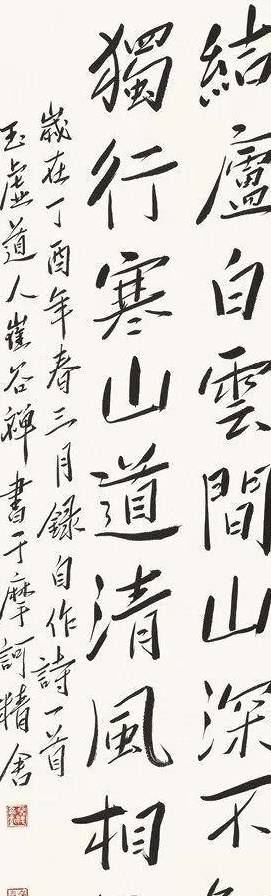 結廬白雲間山深不
獨行寒山道清風相
歲在丁酉年春三月錄自作詩一首
玉虛道人崔谷禪書于摩訶精舍